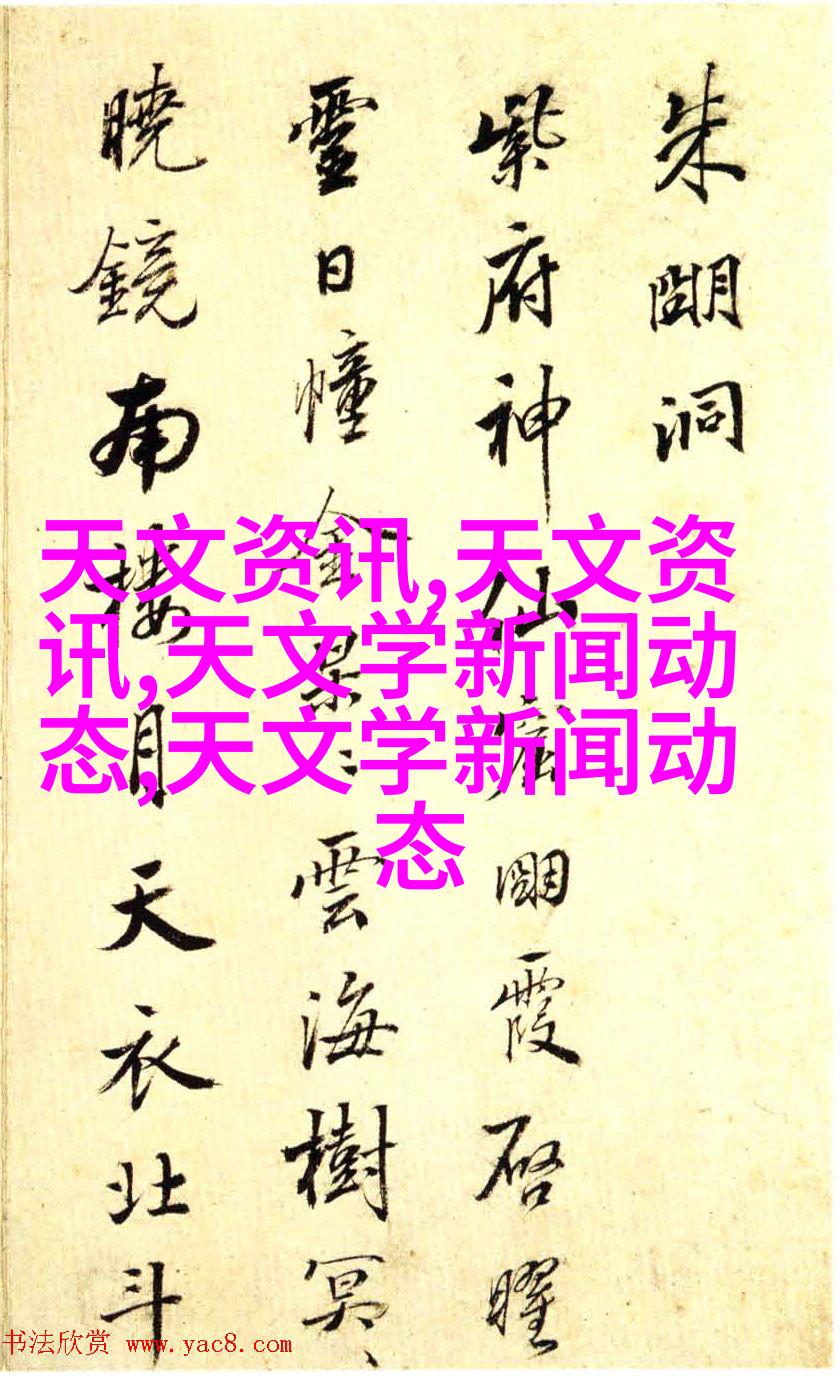 朱朙洞
紫府神仙窟朙霞启曜
靈日幢金景〻雲海樹冥〻
曉鏡南樓月天衣北斗
天文资讯,天文资
讯,天文学新闻动
态,天文学新闻动
态
书法欣赏 www.yac8.com